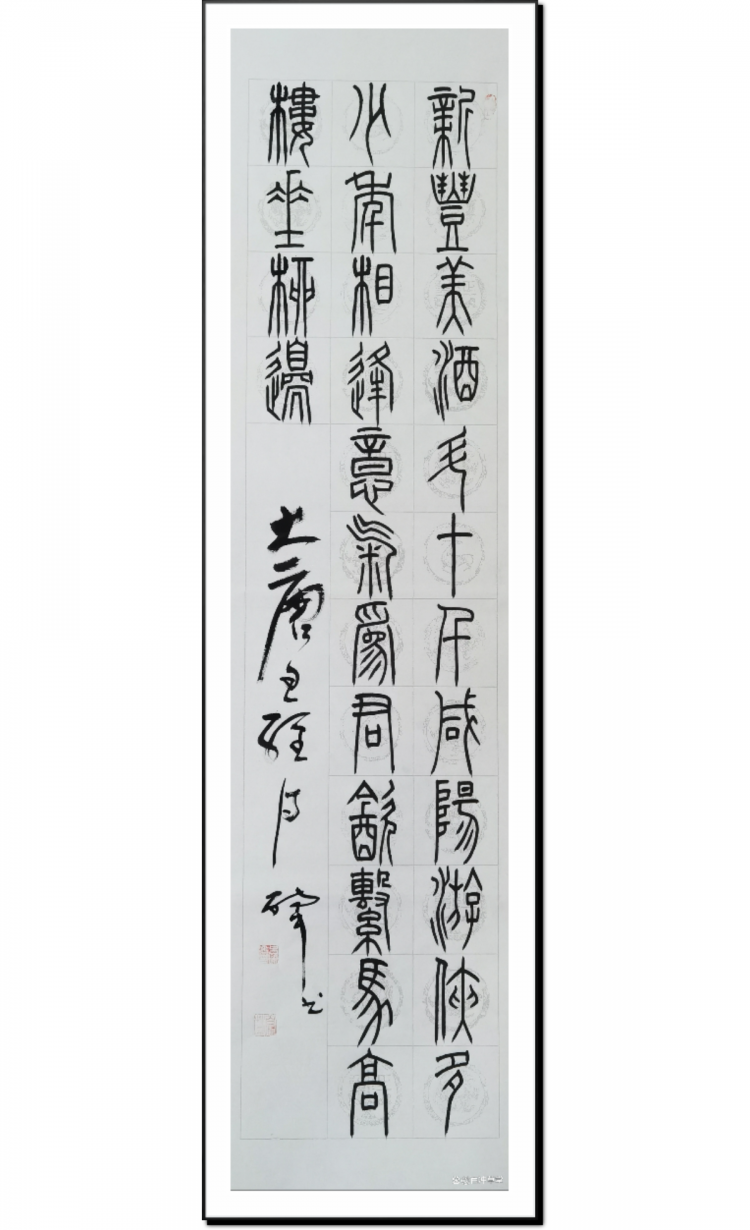 新豐美酒斗十千咸陽游俠多
少年相逢意氣爲君飲繫馬高
樓垂柳邊
大唐王維詩